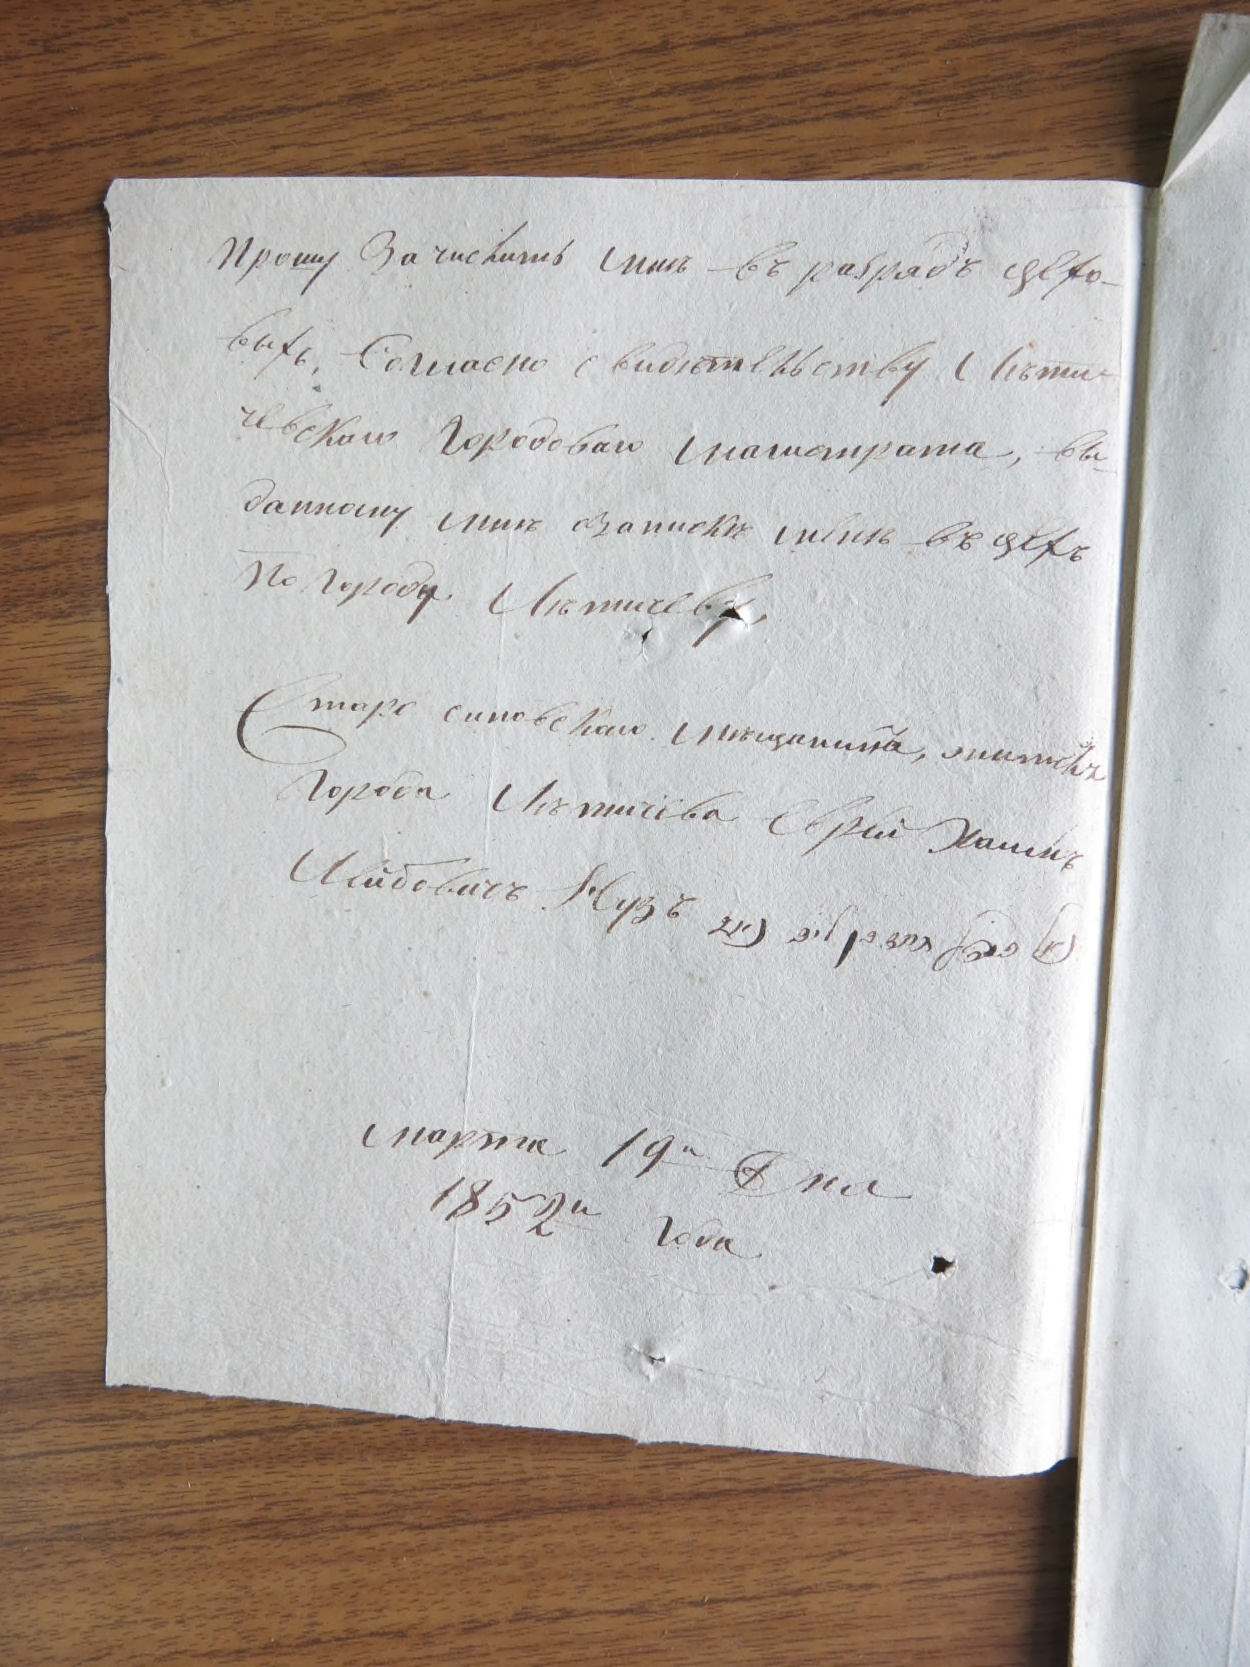 Прошу Зачислить мѣнѣ въ разрядъ цехо-
выхъ, Согласно свидѣтельству Лѣти-
чевскаго Городоваго магистрата, вы-
данному мнѣ Записке мѣнѣ въ цехъ
По Городу Лѣтичеву,
Старо синовскаго мѣщанина, житель
Города Лѣтичева Еврей Хаимъ
Лейбовичъ Нузъ
марта 19го Дня
1852го Года